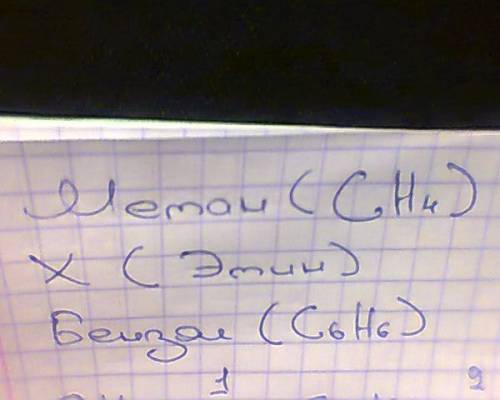 Метан (CH4)
X (Этин)
Бензол (C6H6)
1 2